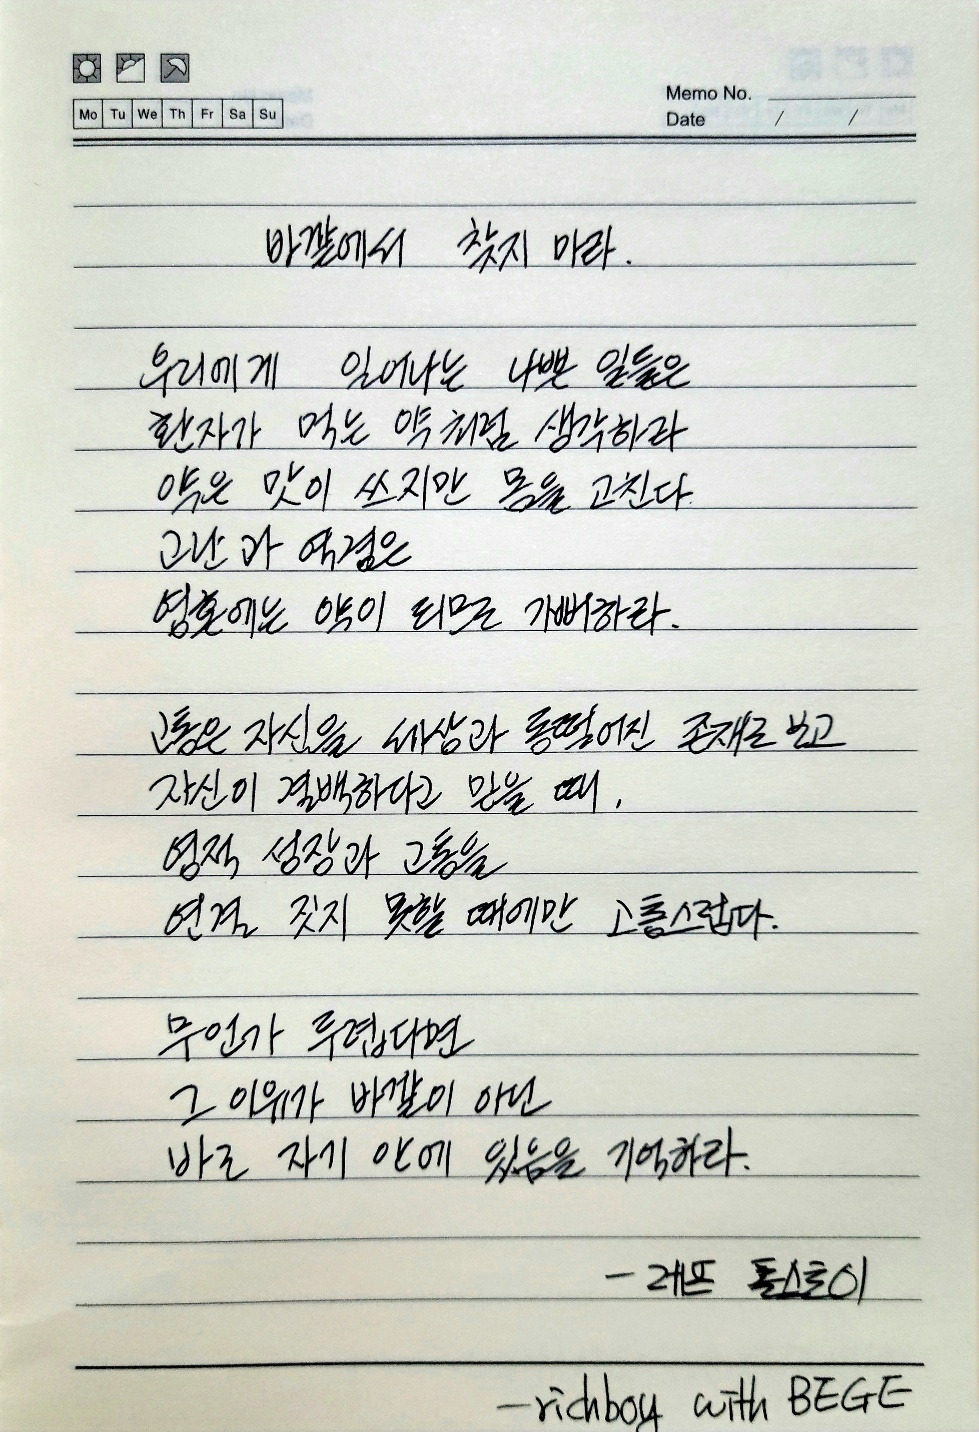 Mo Tu We Th Fr Sa Su
Memo No.
Date / /
바깥에서 찾지 마라.
우리에게 일어나는 나쁜 일들은
환자가 먹는 약처럼 생각하라
약은 맛이 쓰지만 몸을 고친다.
고난과 역경은
영혼에는 약이 되므로 기뻐하라.
고통은 자신을 세상과 동떨어진 존재로 보고
자신이 결백하다고 믿을 때,
영적 성장과 고통을
연결 짓지 못할 때에만 고통스럽다.
무언가 두렵다면
그 이유가 바깥이 아닌
바로 자기 안에 있음을 기억하라.
- 레프 톨스토이
- richboy with BEGE